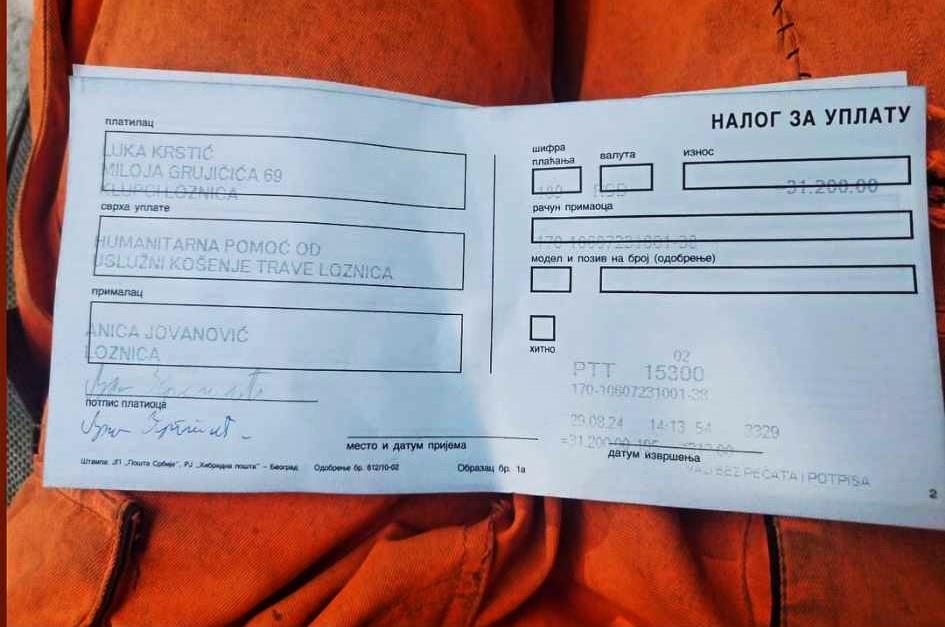 НАЛОГ ЗА УПЛАТУ
платилац
LUKA KRSTIĆ
MILOJA GRUJIČIĆA 69
KLUPCI LOZNICA
сврха уплате
HUMANITARNA POMOĆ OD
USLUŽNI KOŠENJE TRAVE LOZNICA
прималац
ANICA JOVANOVIĆ
LOZNICA
потпис платиоца
место и датум пријема
Штампа: ЈП „Пошта Србије", РЈ „Хибридна пошта" – Београд Одобрење бр. 812/10-02 Образац бр. 1а
шифра плаћања
валута
износ
RSD
=31.200,00
рачун примаоца
170-10607231001-38
модел и позив на број (одобрење)
хитно
02
PTT 15300
170-10607231001-38
29.08.24 14:13 54 3329
=31.200,00
датум извршења
BEZ PEČATA I POTPISA
2